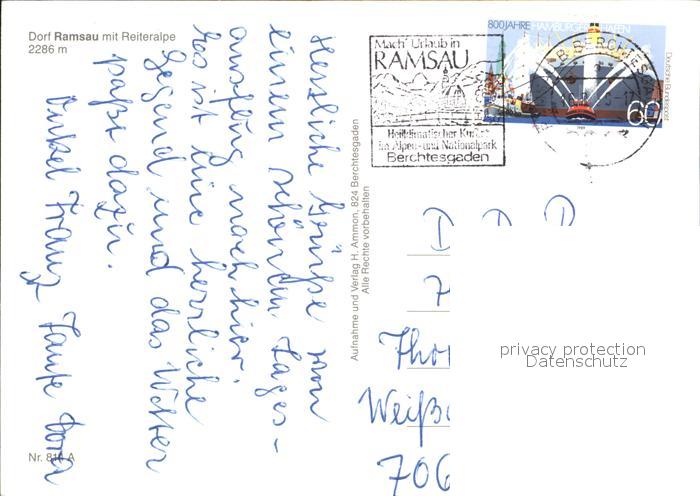 Dorf Ramsau mit Reiteralpe
2286 m
Herzliche Grüße von
einem schönen Tages-
ausflug nach hier.
Es ist eine herrliche
Gegend und das Wetter
paßt dazu.
Onkel Franz Tante Dora
Nr. 814 A
Aufnahme und Verlag H. Ammon, 824 Berchtesgaden
Alle Rechte vorbehalten
Mach' Urlaub in
RAMSAU
Heilklimatischer Kurort
im Alpen- und Nationalpark
Berchtesgaden
800 JAHRE HAMBURGER HAFEN
Deutsche Bundespost
60
BERCHTESG
D D D
7
Tho
Weiß
706
privacy protection
Datenschutz